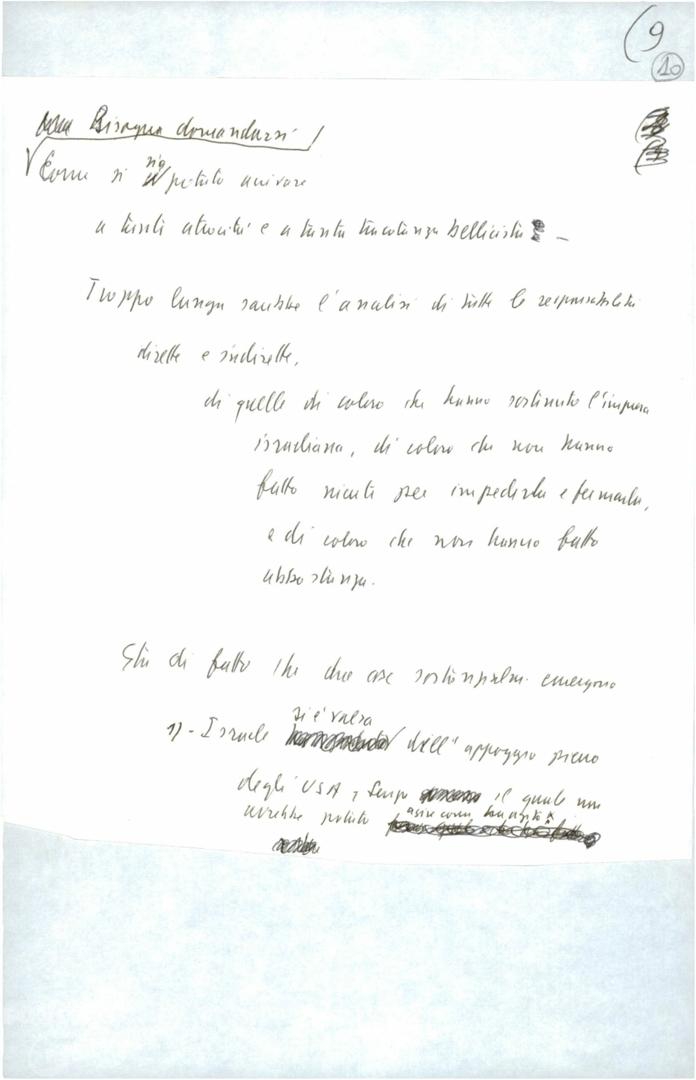 (9
10
Bisogna domandarsi
Come si sia potuto arrivare
a tante atrocità e a tanta tracotanza bellicista? -
Troppo lunga sarebbe l'analisi di tutte le responsabilità
dirette e indirette,
di quelle di coloro che hanno sostenuto l'impresa
israeliana, di coloro che non hanno
fatto niente per impedirla e fermarla,
e di coloro che non hanno fatto
abbastanza.
Sta di fatto che due cose sostanziali emergono
si è valsa
1) - Israele dell'appoggio pieno
degli USA, senza il quale non
avrebbe potuto agire come ha agito.